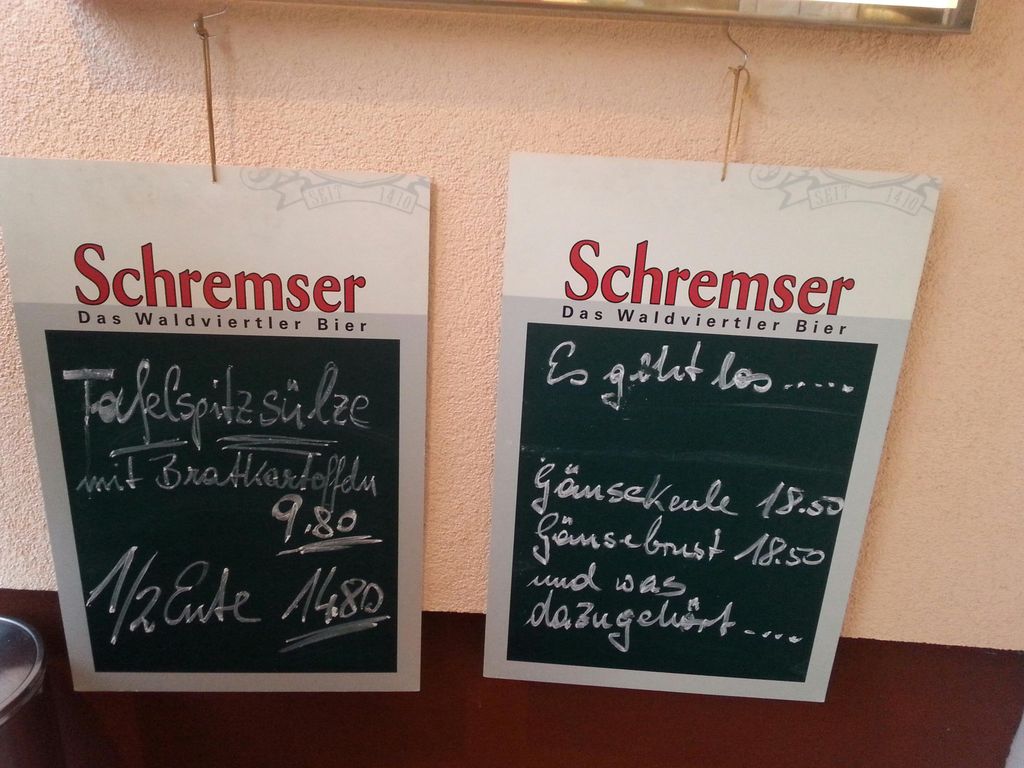 SEIT 1410
Schremser
Das Waldviertler Bier
Tafelspitzsülze
mit Bratkartoffeln
9.80
1/2 Ente 14.80
SEIT 1410
Schremser
Das Waldviertler Bier
Es geht los.....
Gänsekeule 18.50
Gänsebrust 18.50
und was
dazugehört....